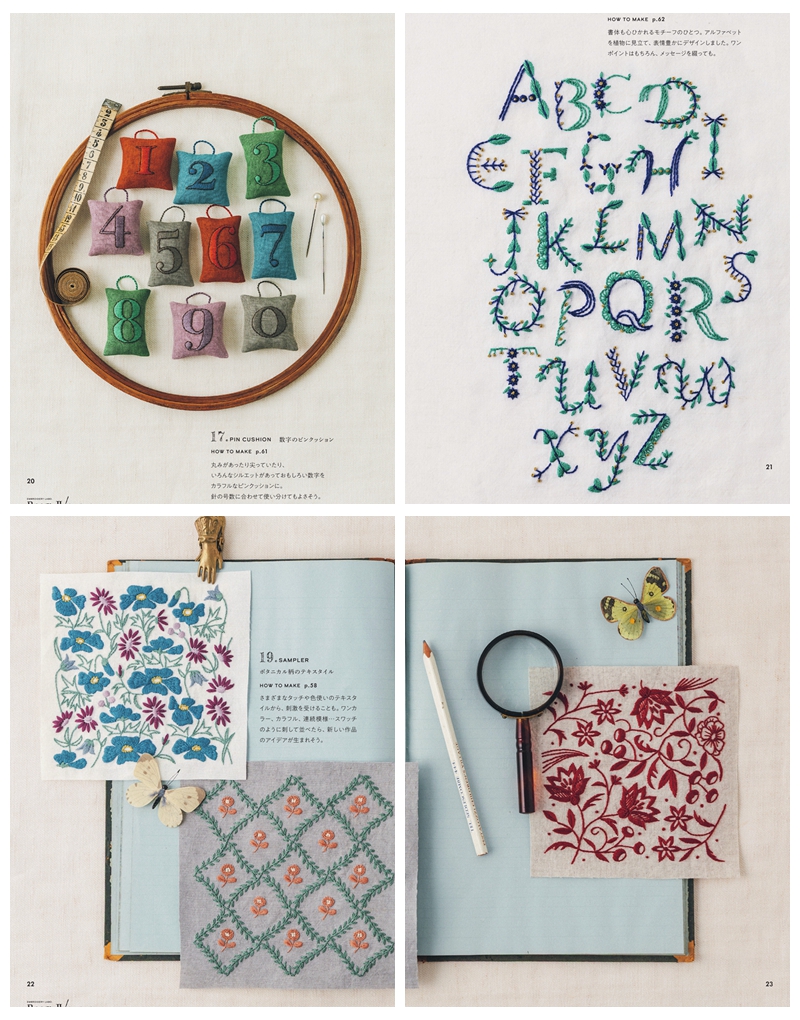 1
2
3
4
5
6
7
8
9
0
17. PIN CUSHION 数字のピンクッション
HOW TO MAKE p.61
丸みがあったり尖っていたり、
いろんなシルエットがあっておもしろい数字を
カラフルなピンクッションに。
針の号数に合わせて使い分けてもよさそう。
20
HOW TO MAKE p.62
書体も心ひかれるモチーフのひとつ。アルファベット
を植物に見立て、表情豊かにデザインしました。ワン
ポイントはもちろん、メッセージを綴っても。
A B C D
E F G H I
J K L M N
O P Q R S
T U V W
X Y Z
21
19. SAMPLER
ボタニカル柄のテキスタイル
HOW TO MAKE p.58
さまざまなタッチや色使いのテキスタ
イルから、刺激を受けることも。ワンカ
ラー、カラフル、連続模様…スワッチ
のように刺して並べたら、新しい作品
のアイデアが生まれそう。
22
23